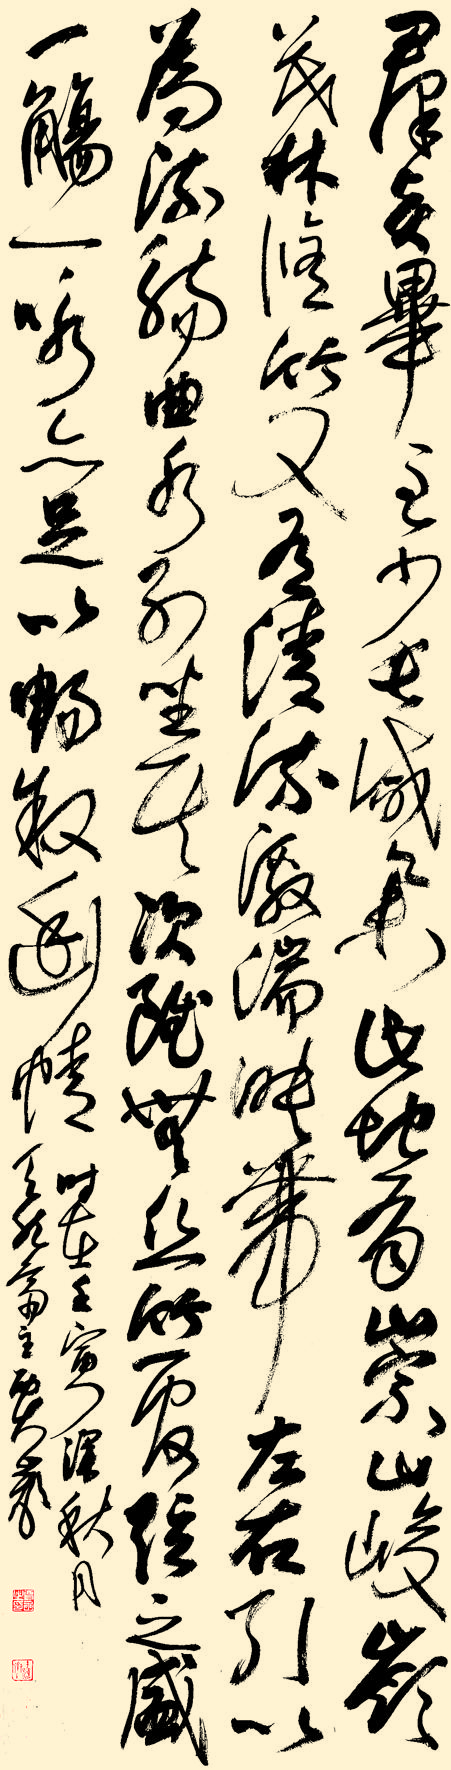 羣賢畢至少長咸集此地有崇山峻嶺
茂林脩竹又有清流激湍映帶左右引以
為流觴曲水列坐其次雖無絲竹管弦之盛
一觴一咏亦足以暢敘幽情
時在壬寅深秋月
齋主